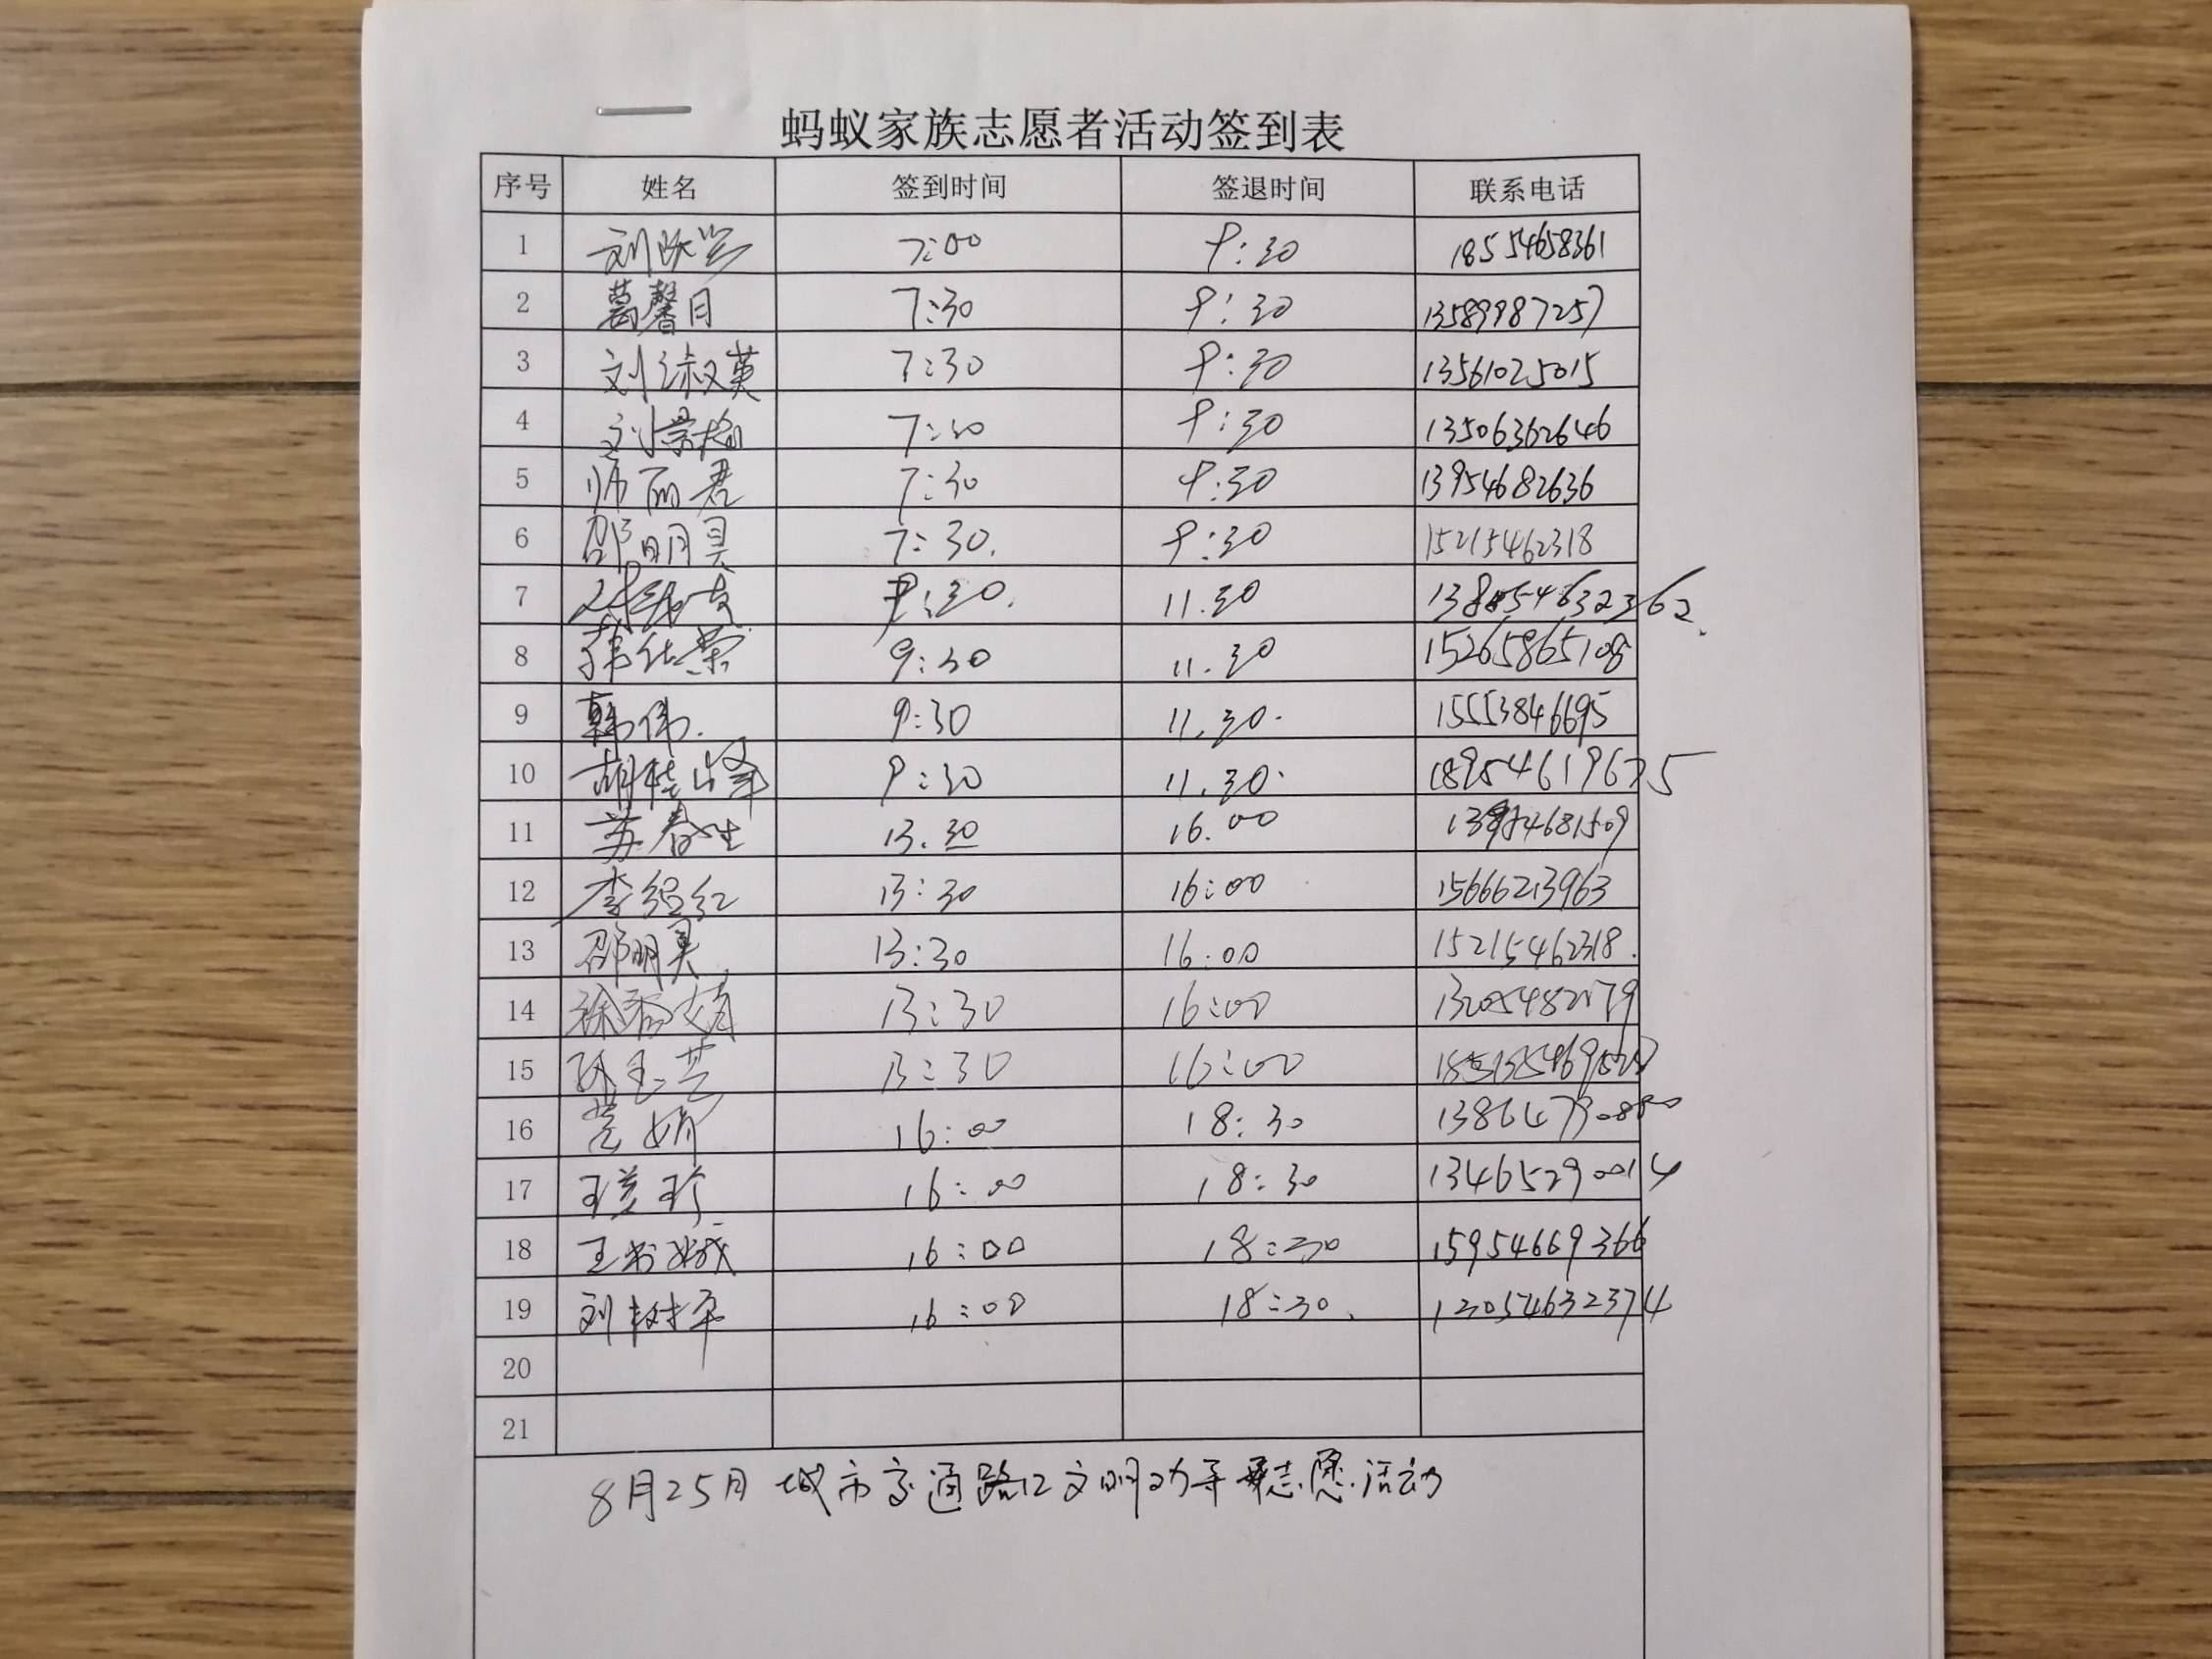 蚂蚁家族志愿者活动签到表
序号 姓名 签到时间 签退时间 联系电话
1 刘跃兰 7:00 9:30 18554658361
2 葛馨月 7:30 9:30 13589987257
3 刘淑英 7:30 9:30 13561025015
4 7:30 9:30 13506362646
5 师丽君 7:30 9:30 13954682636
6 邵明昊 7:30. 9:30 15215462318
7 9:30. 11.30
8 9:30 11.30 15265865108
9 韩伟. 9:30 11.30. 15553846695
10 胡桂峰 9:30 11.30. 18954619675
11 苏春生 13.30 16.00
12 13:30 16:00 15666213963
13 邵明昊 13:30 16:00 15215462318.
14 13:30 16:00
15 13:30 16:00
16 16:00 18:30
17 16:00 18:30 13465290014
18 16:00 18:30 15954669366
19 刘树平 16:00 18:30. 13054632374
20
21
8月25日 城市交通路口文明劝导 志愿活动